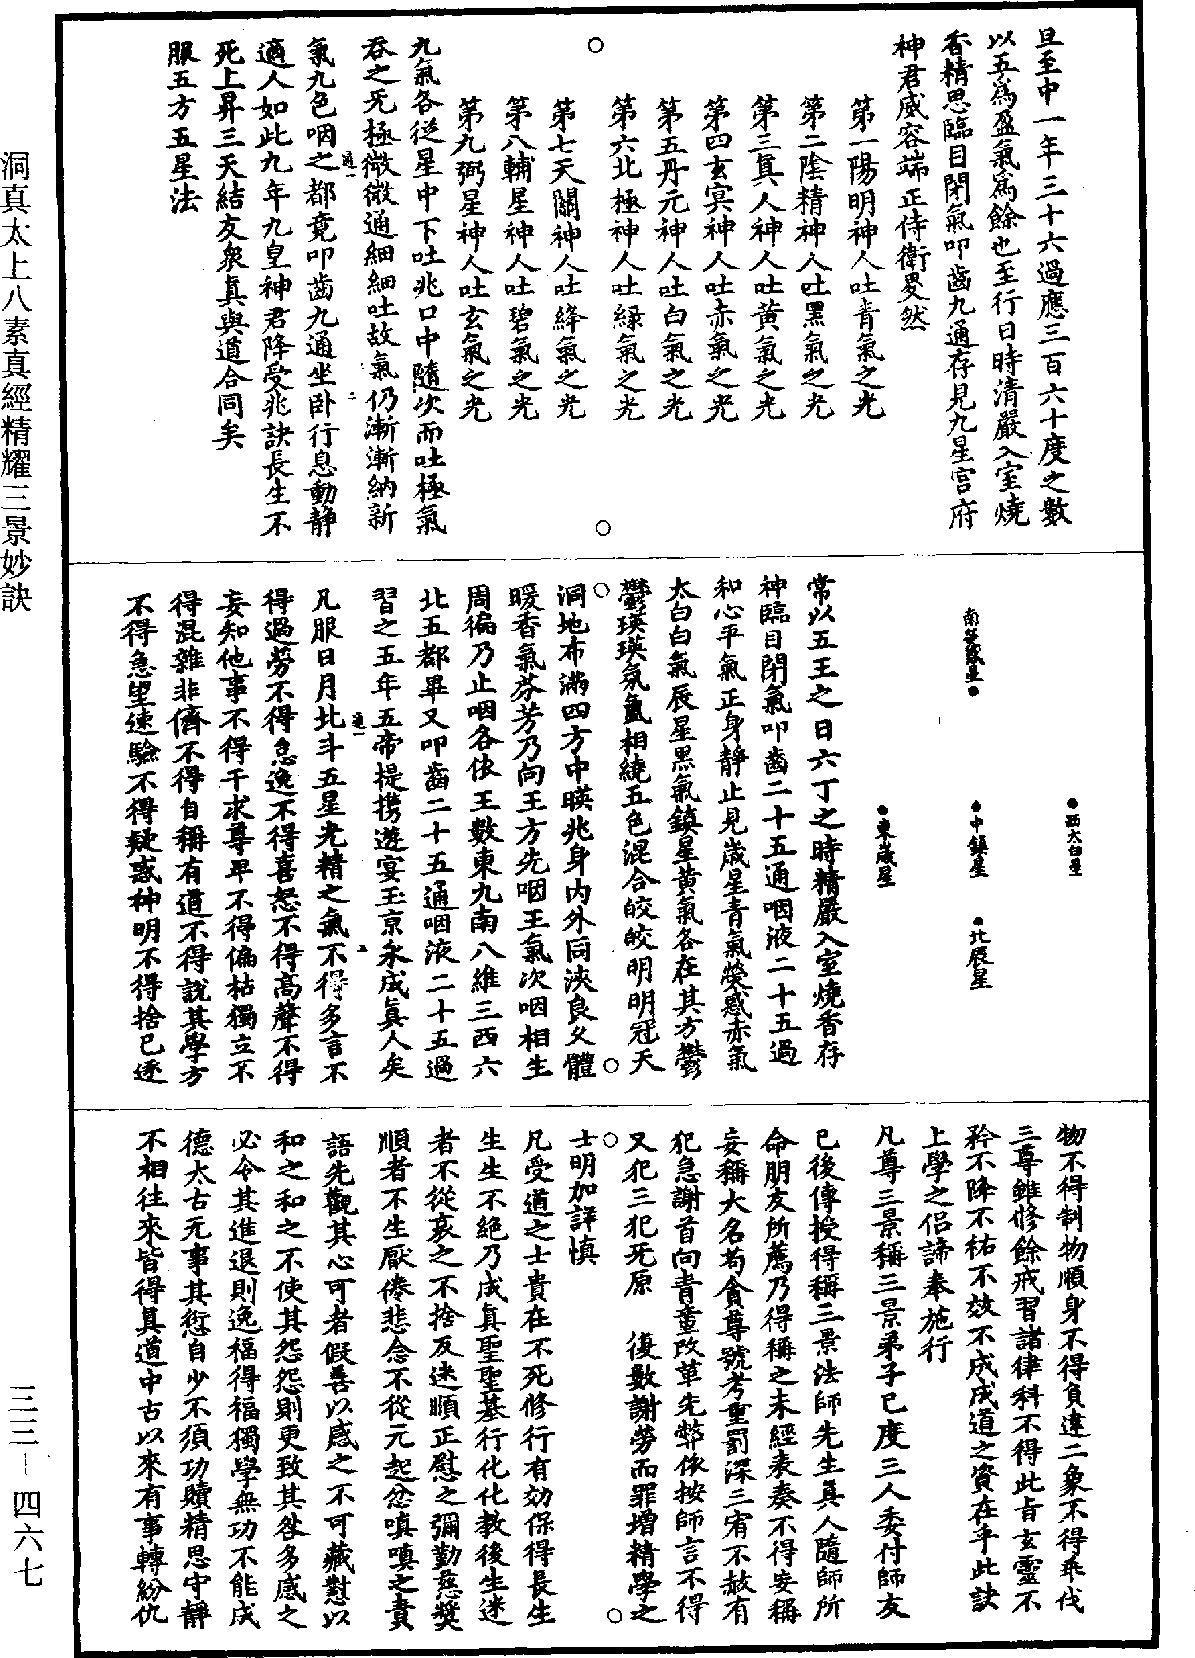 旦至中一年三十六過應三百六十度之數
以五為盈氣為餘也至行日時清嚴入室燒
香精思臨目閉氣叩齒九通存見九星宮府
神君威容端正侍衛畟然
第一陽明神人吐青氣之光
第二陰精神人吐黑氣之光
第三真人神人吐黃氣之光
第四玄冥神人吐赤氣之光
第五丹元神人吐白氣之光
第六北極神人吐綠氣之光
第七天關神人吐絳氣之光
第八輔星神人吐碧氣之光
第九弼星神人吐玄氣之光
九氣各從星中下吐兆口中隨次而吐極氣
吞之无極微微通細細吐故氣仍漸漸納新
氣九色咽之都竟叩齒九通坐卧行息動靜
適人如此九年九皇神君降受兆訣長生不
死上昇三天結友衆真與道合同矣
服五方五星法
西太白星
南熒惑星
中鎮星
北辰星
東歲星
常以五王之日六丁之時精嚴入室燒香存
神臨目閉氣叩齒二十五通咽液二十五過
和心平氣正身靜止見歲星青氣熒惑赤氣
太白白氣辰星黑氣鎮星黃氣各在其方鬱
鬱瑛瑛氛氳相繞五色混合皎皎明明冠天
洞地布滿四方中暎兆身內外同浹良久體
暖香氣芬芳乃向王方先咽王氣次咽相生
周徧乃止咽各依王數東九南八維三西六
北五都畢又叩齒二十五通咽液二十五過
習之五年五帝提攜遊宴玉京永成真人矣
凡服日月北斗五星光精之氣不得多言不
得過勞不得怠逸不得喜怒不得高聲不得
妄知他事不得干求尊卑不得偏枯獨立不
得混雜非儕不得自稱有道不得說其學方
不得急望速驗不得疑惑神明不得捨己逐
物不得制物順身不得負違二象不得乖伐
三尊雖修餘戒習諸律科不得此旨玄靈不
矜不降不祐不效不成成道之資在乎此訣
上學之侶諦奉施行
凡尊三景稱三景弟子已度三人委付師友
已後傳授得稱三景法師先生真人隨師所
命朋友所薦乃得稱之未經表奏不得妄稱
妄稱大名苟貪尊號考重罰深三宥不赦有
犯急謝首向青童改革先弊依按師言不得
又犯三犯死原　復數謝勞而罪增精學之
士明加詳慎
凡受道之士貴在不死修行有効保得長生
生生不絕乃成真聖聖基行化化教後生迷
者不從哀之不捨反迷順正慰之彌勤慈獎
順者不生厭倦悲念不從元起忿嗔嗔之責
語先觀其心可者假善以感之不可藏懟以
和之和之不使其怨怨則更致其咎多感之
必令其進退則逸福得福獨學無功不能成
德太古无事其愆自少不須功贖精思守靜
不相往來皆得真道中古以來有事轉紛仇
洞真太上八素真經精耀三景妙訣
三三－四六七